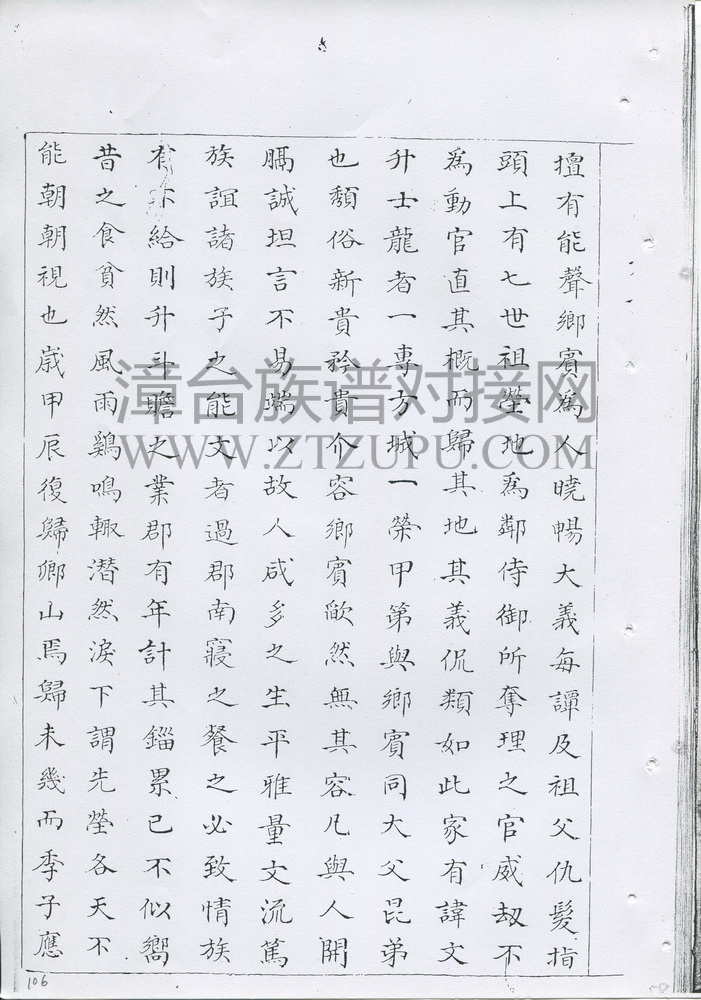 擅有能聲鄉賓為人曉暢大義每譚及祖父仇髮指
頭上有七世祖塋地為鄰侍御所奪理之官威刼不
為動官直其概而歸其地其義侃類如此家有諱文
升士龍者一專方城一榮甲第與鄉賓同大父昆弟
也頹俗新貴矜貴介容鄉賓歐然無其容凡與人開
膈誠坦言不易端以故人咸多之生平雅量文流篤
族誼諸族子之能文者過郡南寢之餐之必致情族
有不給則升斗贍之業郡有年計其錙累已不似嚮
昔之食貧然風雨鷄鳴輙潸然淚下謂先塋各天不
能朝朝視也歲甲辰復歸鄉山焉歸未幾而季子應
漳台族谱对接网
WWW.ZTZUPU.COM
106